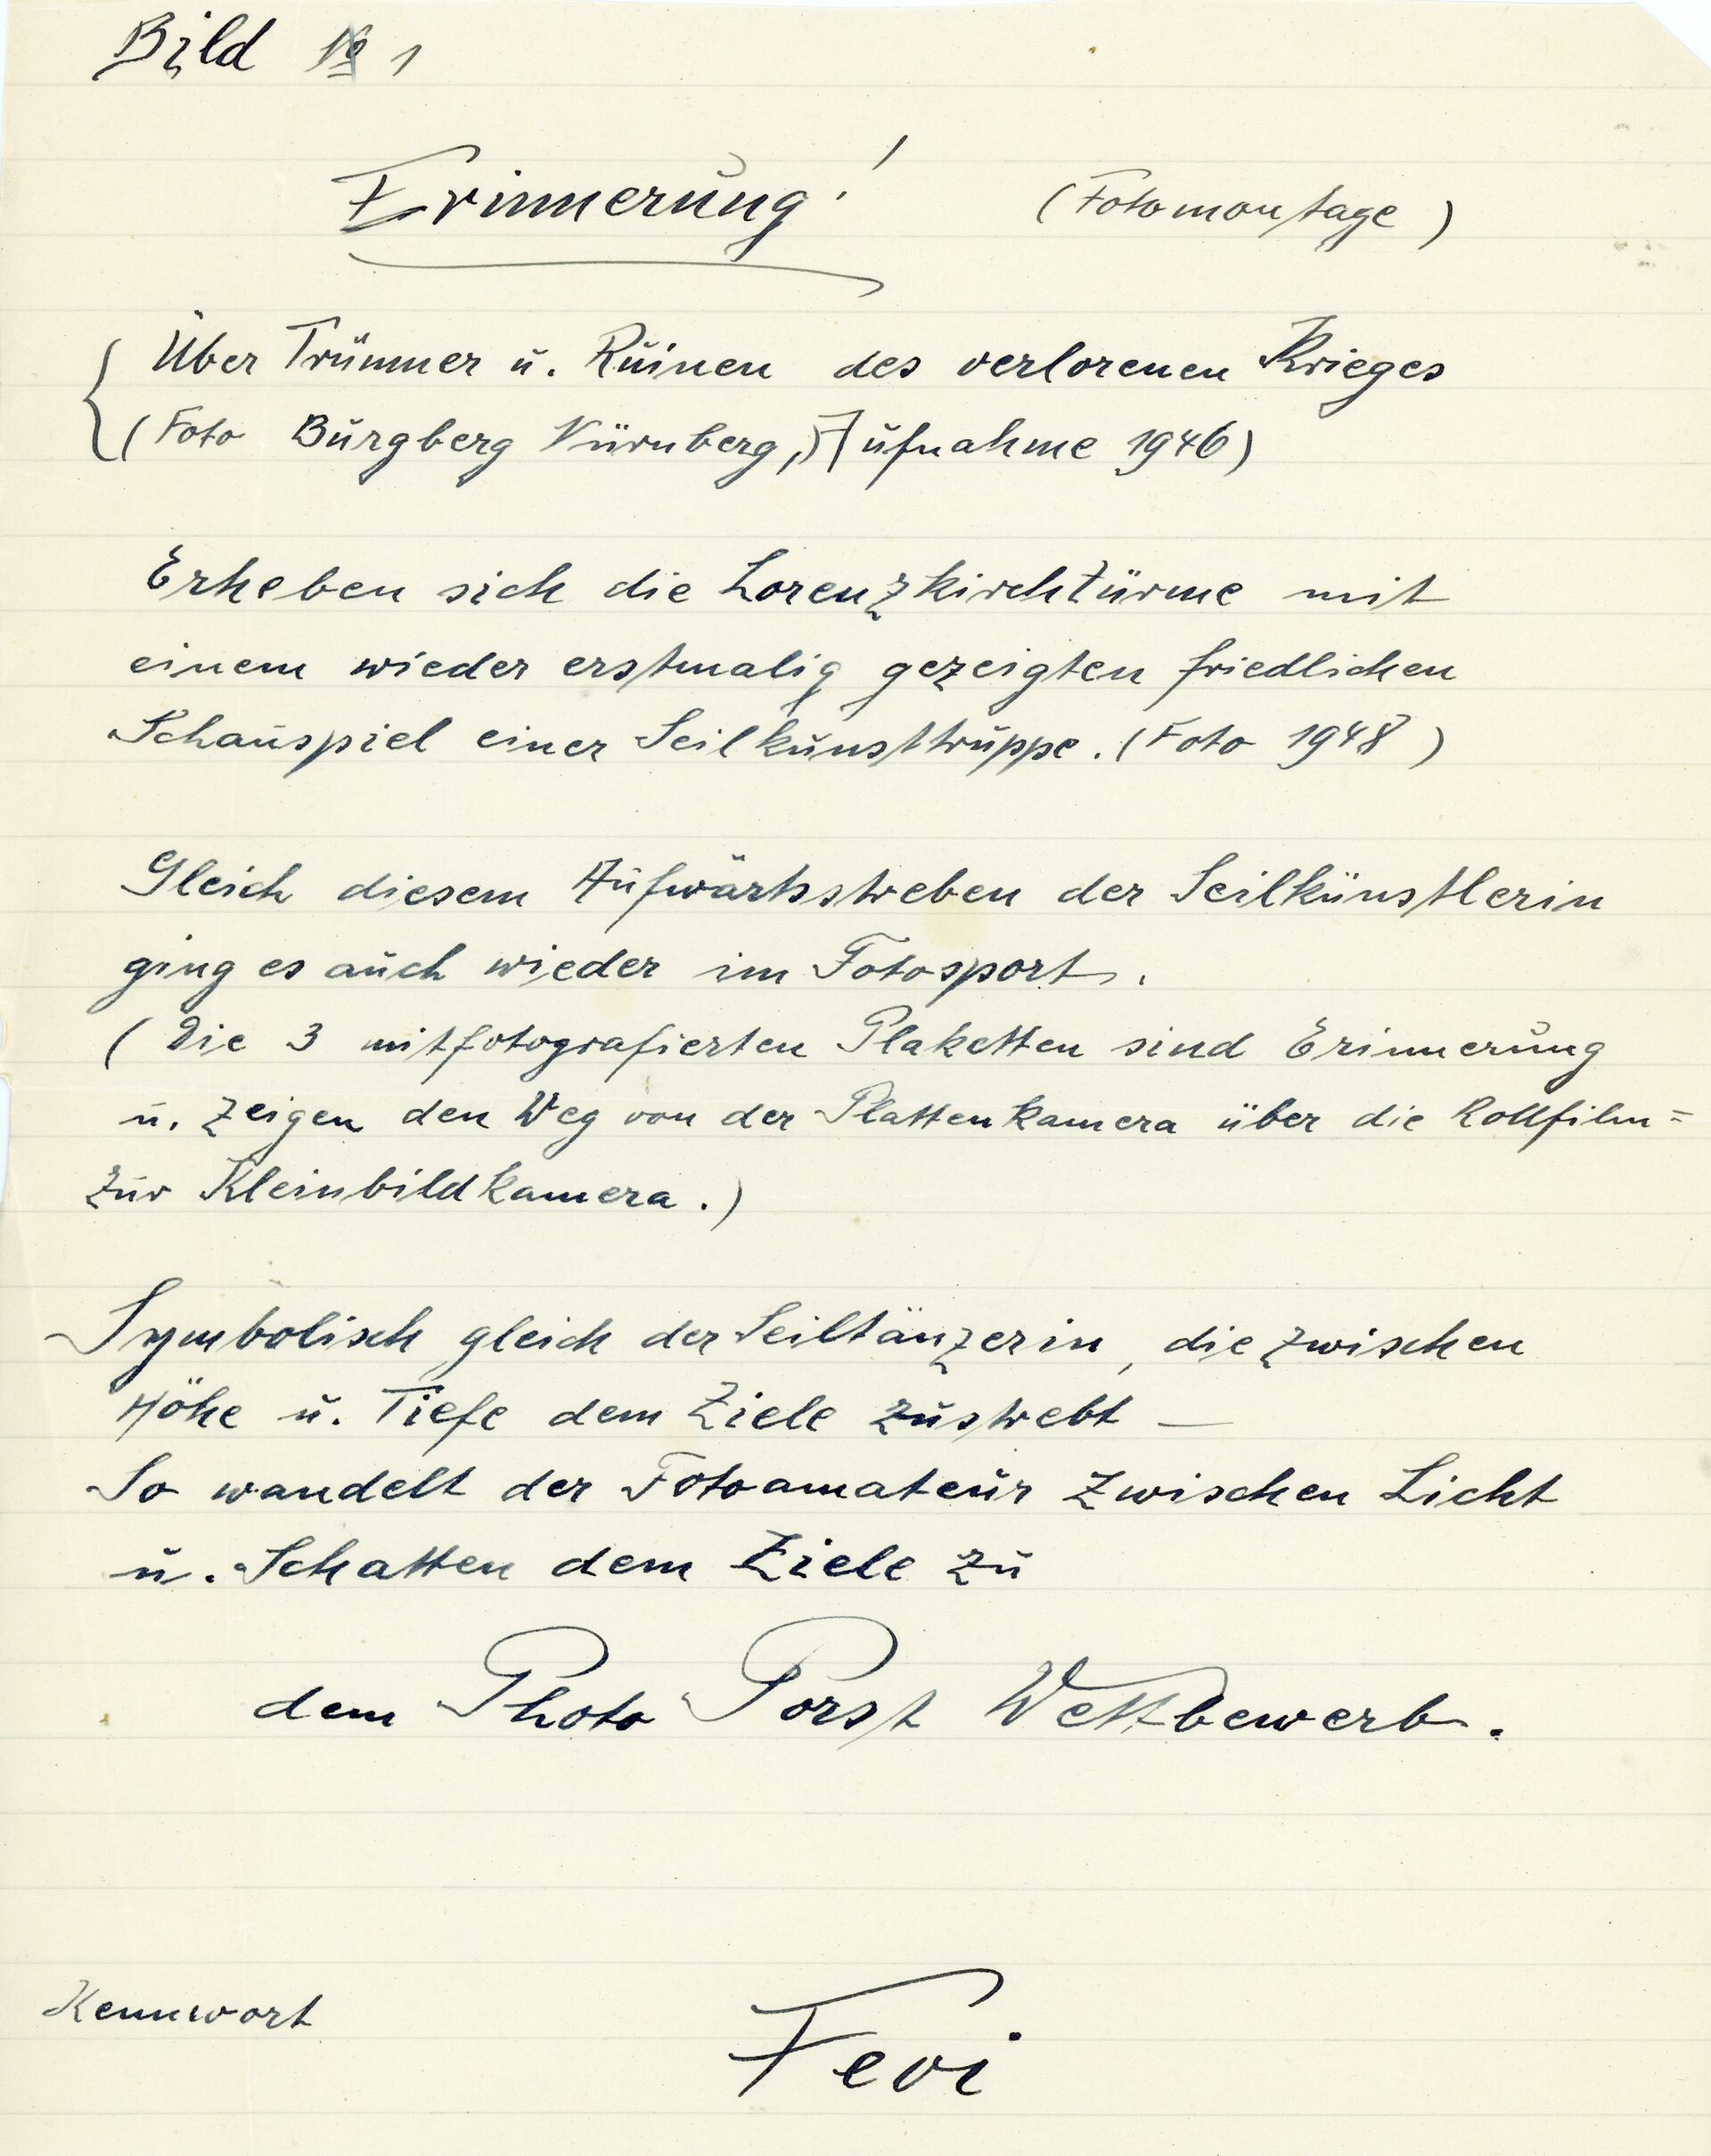 Bild № 1
Erinnerung! (Fotomontage)
Über Trümmer u. Ruinen des verlorenen Krieges
(Foto Burgberg Nürnberg,) Aufnahme 1946)
Erheben sich die Lorenzkirchtürme mit
einem wieder erstmalig gezeigten friedlichen
Schauspiel einer Seilkunsttruppe. (Foto 1948)
Gleich diesem Aufwärtsstreben der Seilkünstlerin
ging es auch wieder im Fotosport.
(Die 3 mitfotografierten Plaketten sind Erinnerung
u. zeigen den Weg von der Plattenkamera über die Rollfilm=
zur Kleinbildkamera.)
Symbolisch gleich der Seiltänzerin, die zwischen
Höhe u. Tiefe dem Ziele zustrebt —
So wandelt der Fotoamateur zwischen Licht
u. Schatten dem Ziele zu
dem Photo Porst Wettbewerb.
Kennwort Fevi